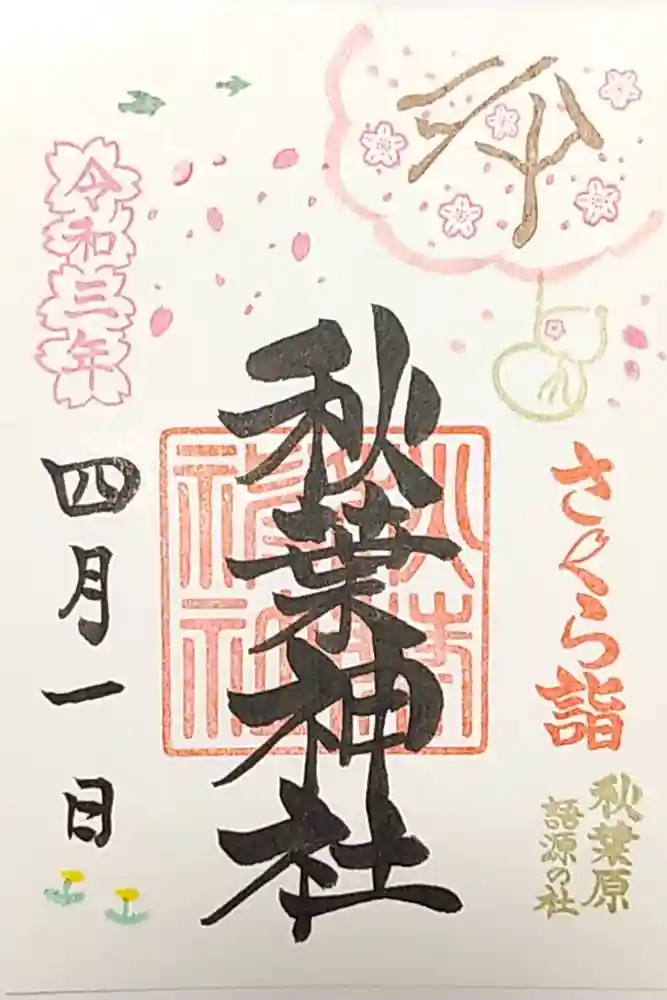 奉拝
さくら詣
秋葉原
語源の社
秋葉神社
令和三年
四月一日